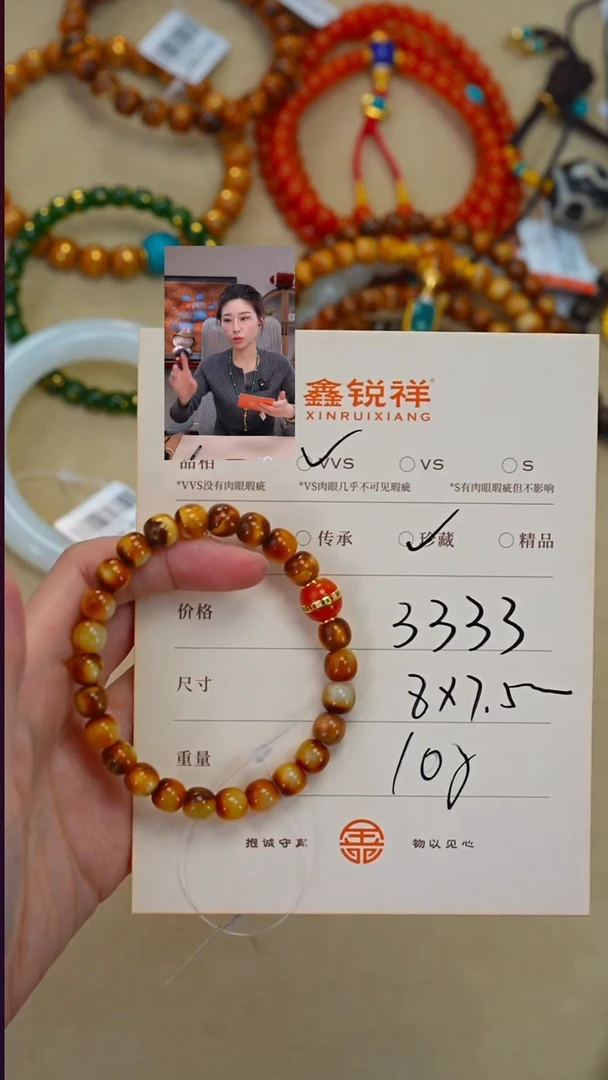 鑫锐祥
XINRUIXIANG
VVS VS S
*VVS没有肉眼瑕疵 *VS肉眼几乎不可见瑕疵 *S有肉眼瑕疵但不影响
传承 珍藏 精品
价格 3333
尺寸 8×7.5
重量 10g
抱诚守真 物以见心